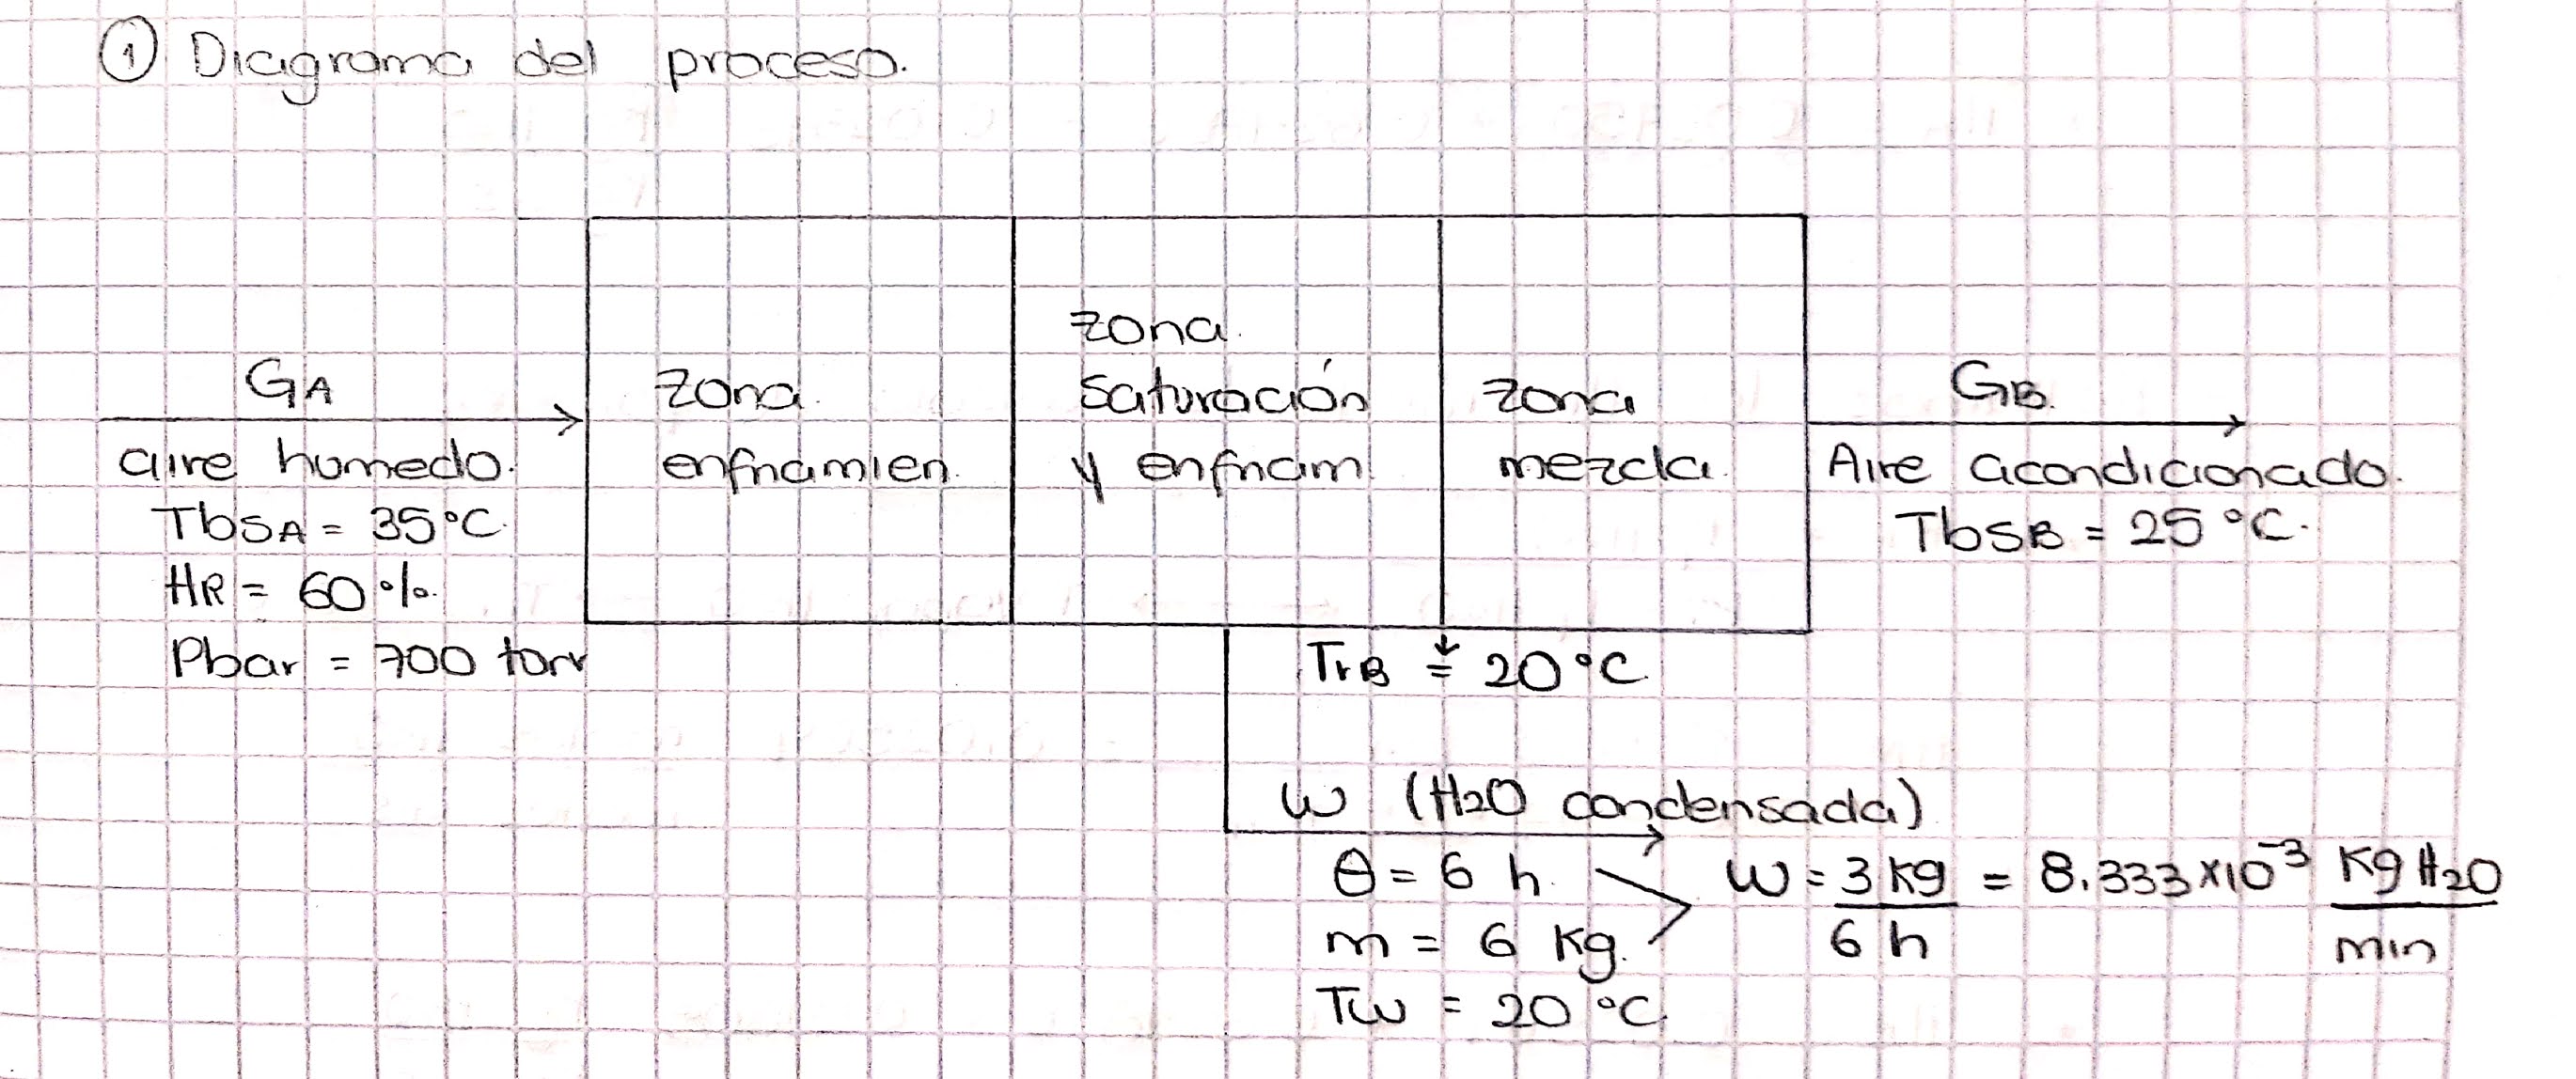 ① Diagrama del proceso.
GA
aire humedo.
TbsA = 35°C.
HR = 60 %.
Pbar = 700 torr
zona
enfriamien.
zona.
saturación
y enfriam.
zona
mezcla.
GB.
Aire acondicionado.
TbsB = 25 °C.
TrB = 20 °C.
W (H2O condensada)
θ = 6 h.
m = 6 Kg.
Tw = 20 °C.
W = 3 Kg / 6 h = 8.333 x10⁻³ Kg H2O / min